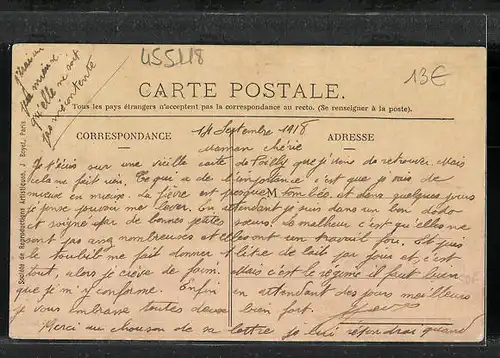 455418
13€
J'écris au
pas mieux
qu'elle ne soit
pas mécontente
CARTE POSTALE.
Tous les pays étrangers n'acceptent pas la correspondance au recto. (Se renseigner à la poste).
CORRESPONDANCE
ADRESSE
14 Septembre 1918
Maman chérie
Je t'écris sur une vieille carte de que je viens de retrouver. Mais
cela ne fait rien. Ce qui a de l'importance c'est que je vais de
mieux en mieux. La fièvre est presque tombée et dans quelques jours
je pense pouvoir me lever. En attendant je suis dans un bon dodo
et soigné par de bonnes petites sœurs. Le malheur c'est qu'elles ne
sont pas assez nombreuses et elles ont un travail fou. Et puis
le toubib me fait donner 1 litre de lait par jour et c'est
tout, alors je crève de faim. Mais c'est le régime il faut bien
que je m'y conforme. Enfin en attendant des jours meilleurs
je vous embrasse toutes deux bien fort.
Merci au chouson de sa lettre je lui répondrai quand
M
Société de Reproductions Artistiques, J. Boyer, Paris